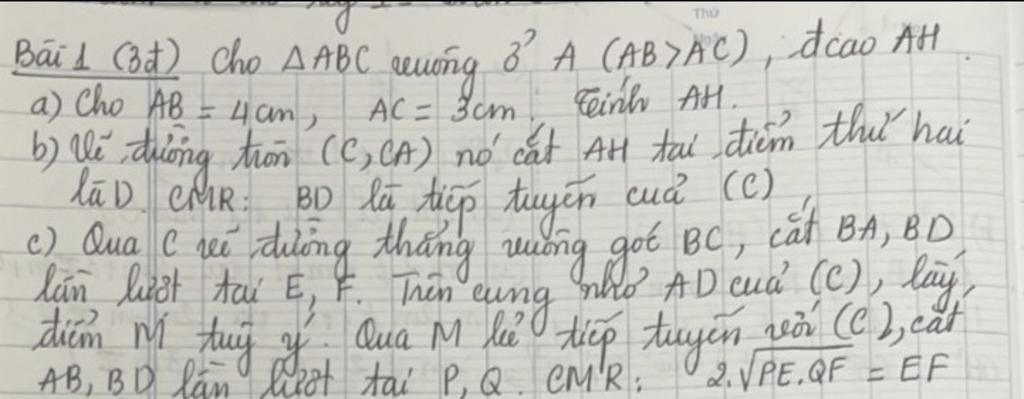 Thứ
Bài 1 (3đ) Cho △ABC vuông ở A (AB>AC), đcao AH.
a) Cho AB = 4cm, AC = 3cm. Tính AH.
b) Vẽ đường tròn (C, CA) nó cắt AH tại điểm thứ hai
là D. CMR: BD là tiếp tuyến cuả (C)
c) Qua C vẽ đường thẳng vuông góc BC, cắt BA, BD
lần lượt tại E, F. Trên cung nhỏ AD cuả (C), lấy
điểm M tuỳ ý. Qua M kẻ tiếp tuyến với (C), cắt
AB, BD lần lượt tại P, Q. CMR: 2.√PE.QF = EF